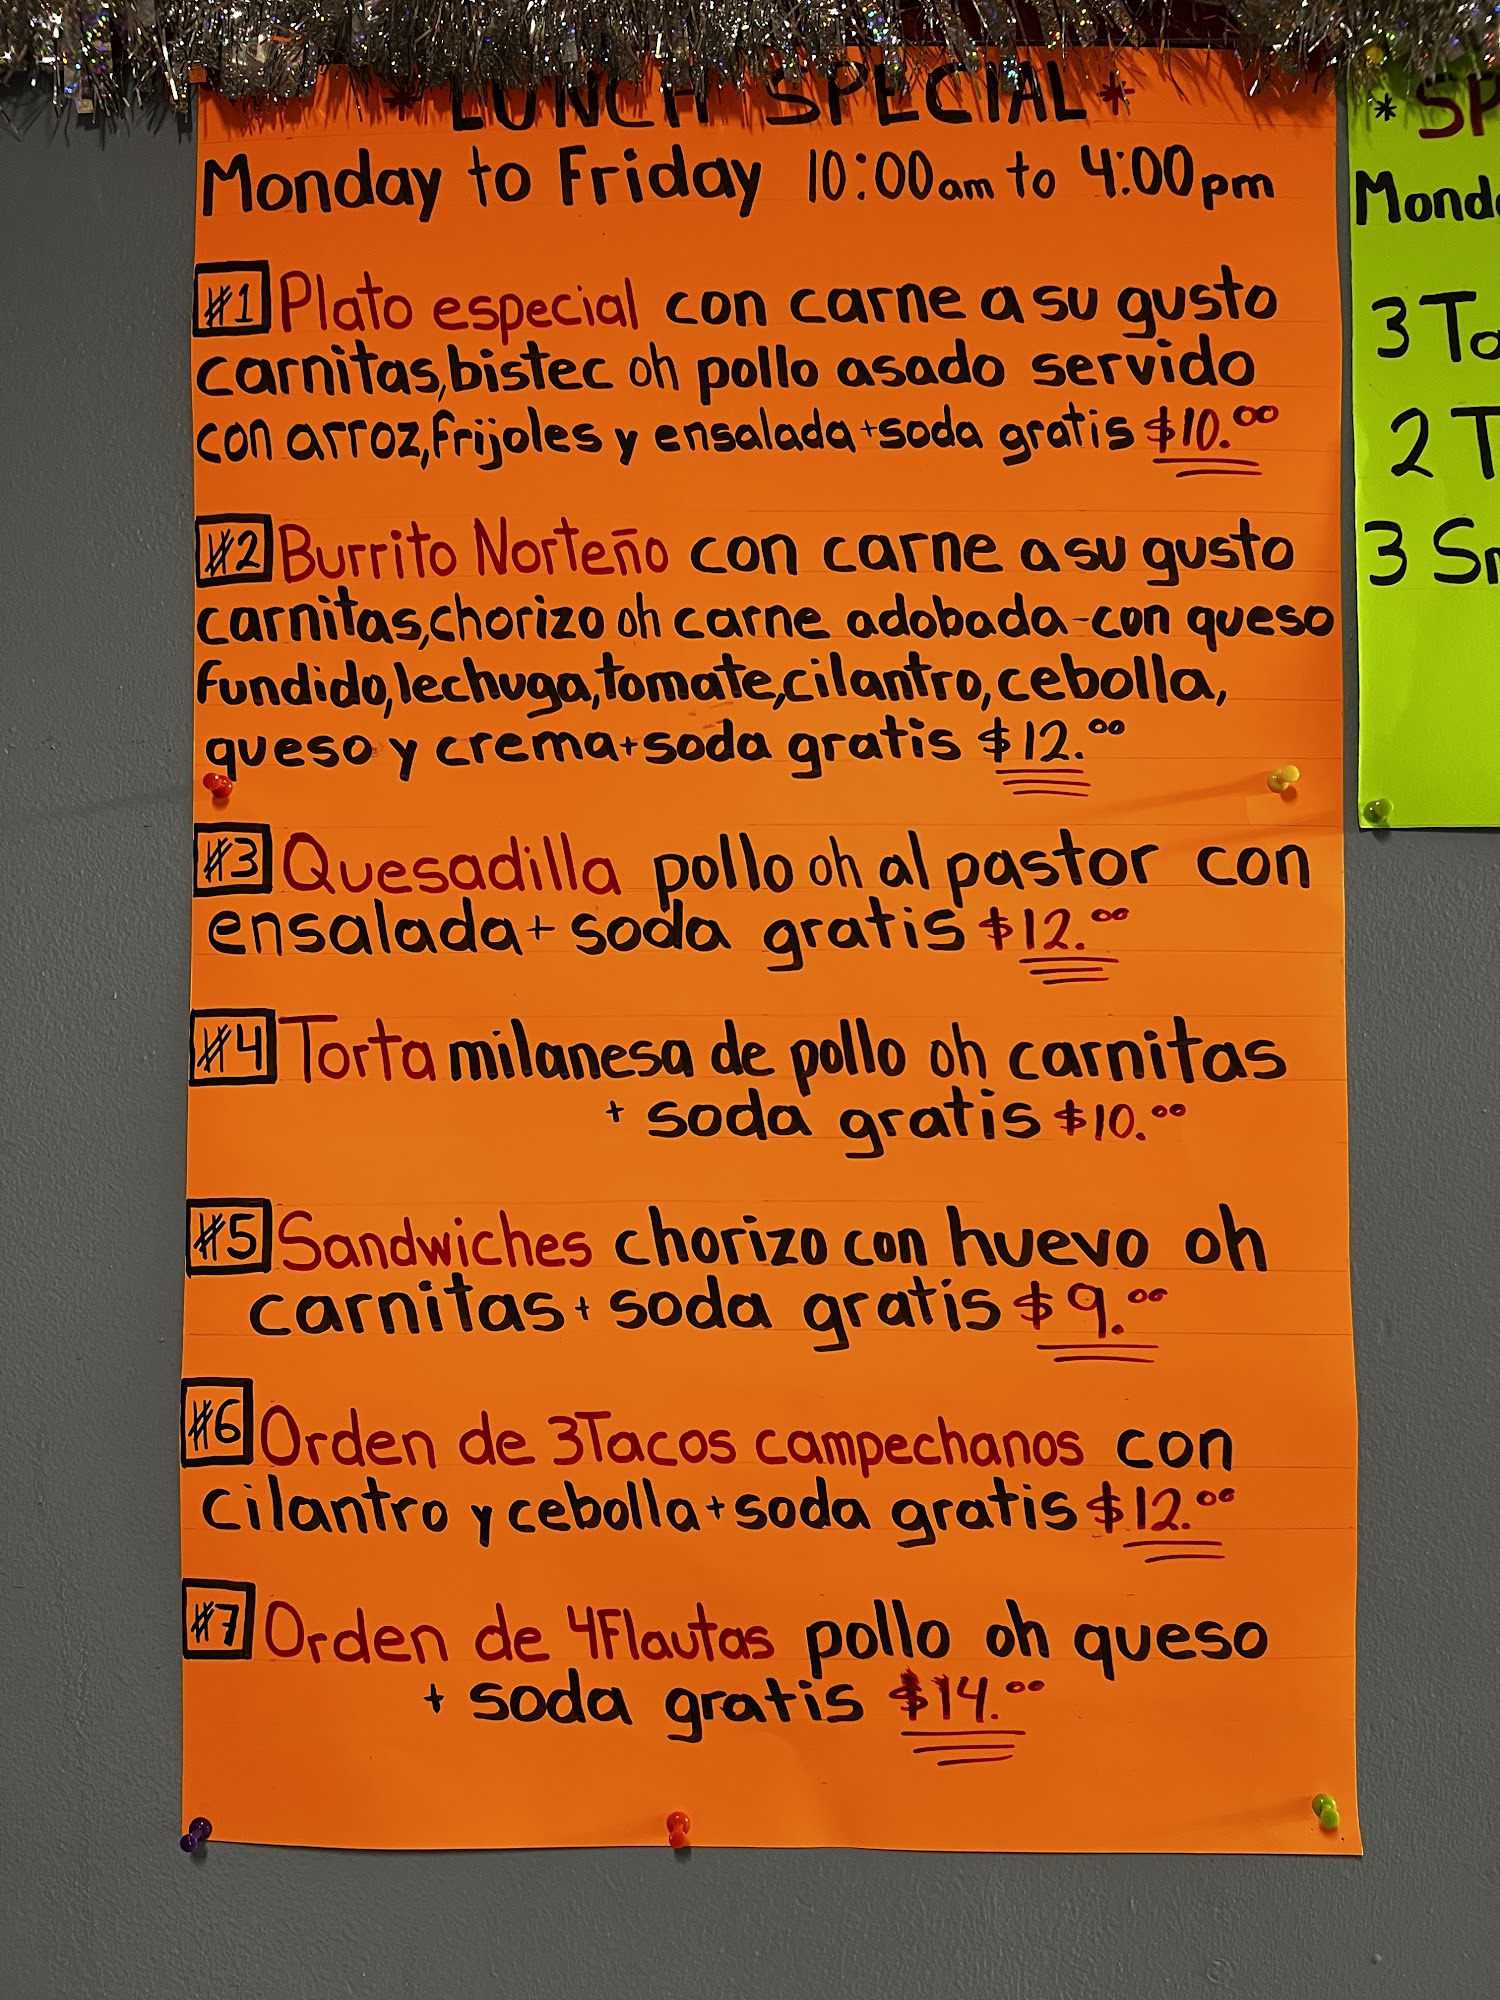 * LUNCH SPECIAL *
Monday to Friday 10:00am to 4:00pm
#1 Plato especial con carne a su gusto
carnitas,bistec oh pollo asado servido
con arroz,frijoles y ensalada+soda gratis $10.00
#2 Burrito Norteño con carne a su gusto
carnitas,chorizo oh carne adobada-con queso
fundido,lechuga,tomate,cilantro,cebolla,
queso y crema+soda gratis $12.00
#3 Quesadilla pollo oh al pastor con
ensalada+soda gratis $12.00
#4 Torta milanesa de pollo oh carnitas
+ soda gratis $10.00
#5 Sandwiches chorizo con huevo oh
carnitas+soda gratis $9.00
#6 Orden de 3Tacos campechanos con
cilantro y cebolla+soda gratis $12.00
#7 Orden de 4Flautas pollo oh queso
+ soda gratis $14.00
* SP
Mond
3 Ta
2 T
3 S